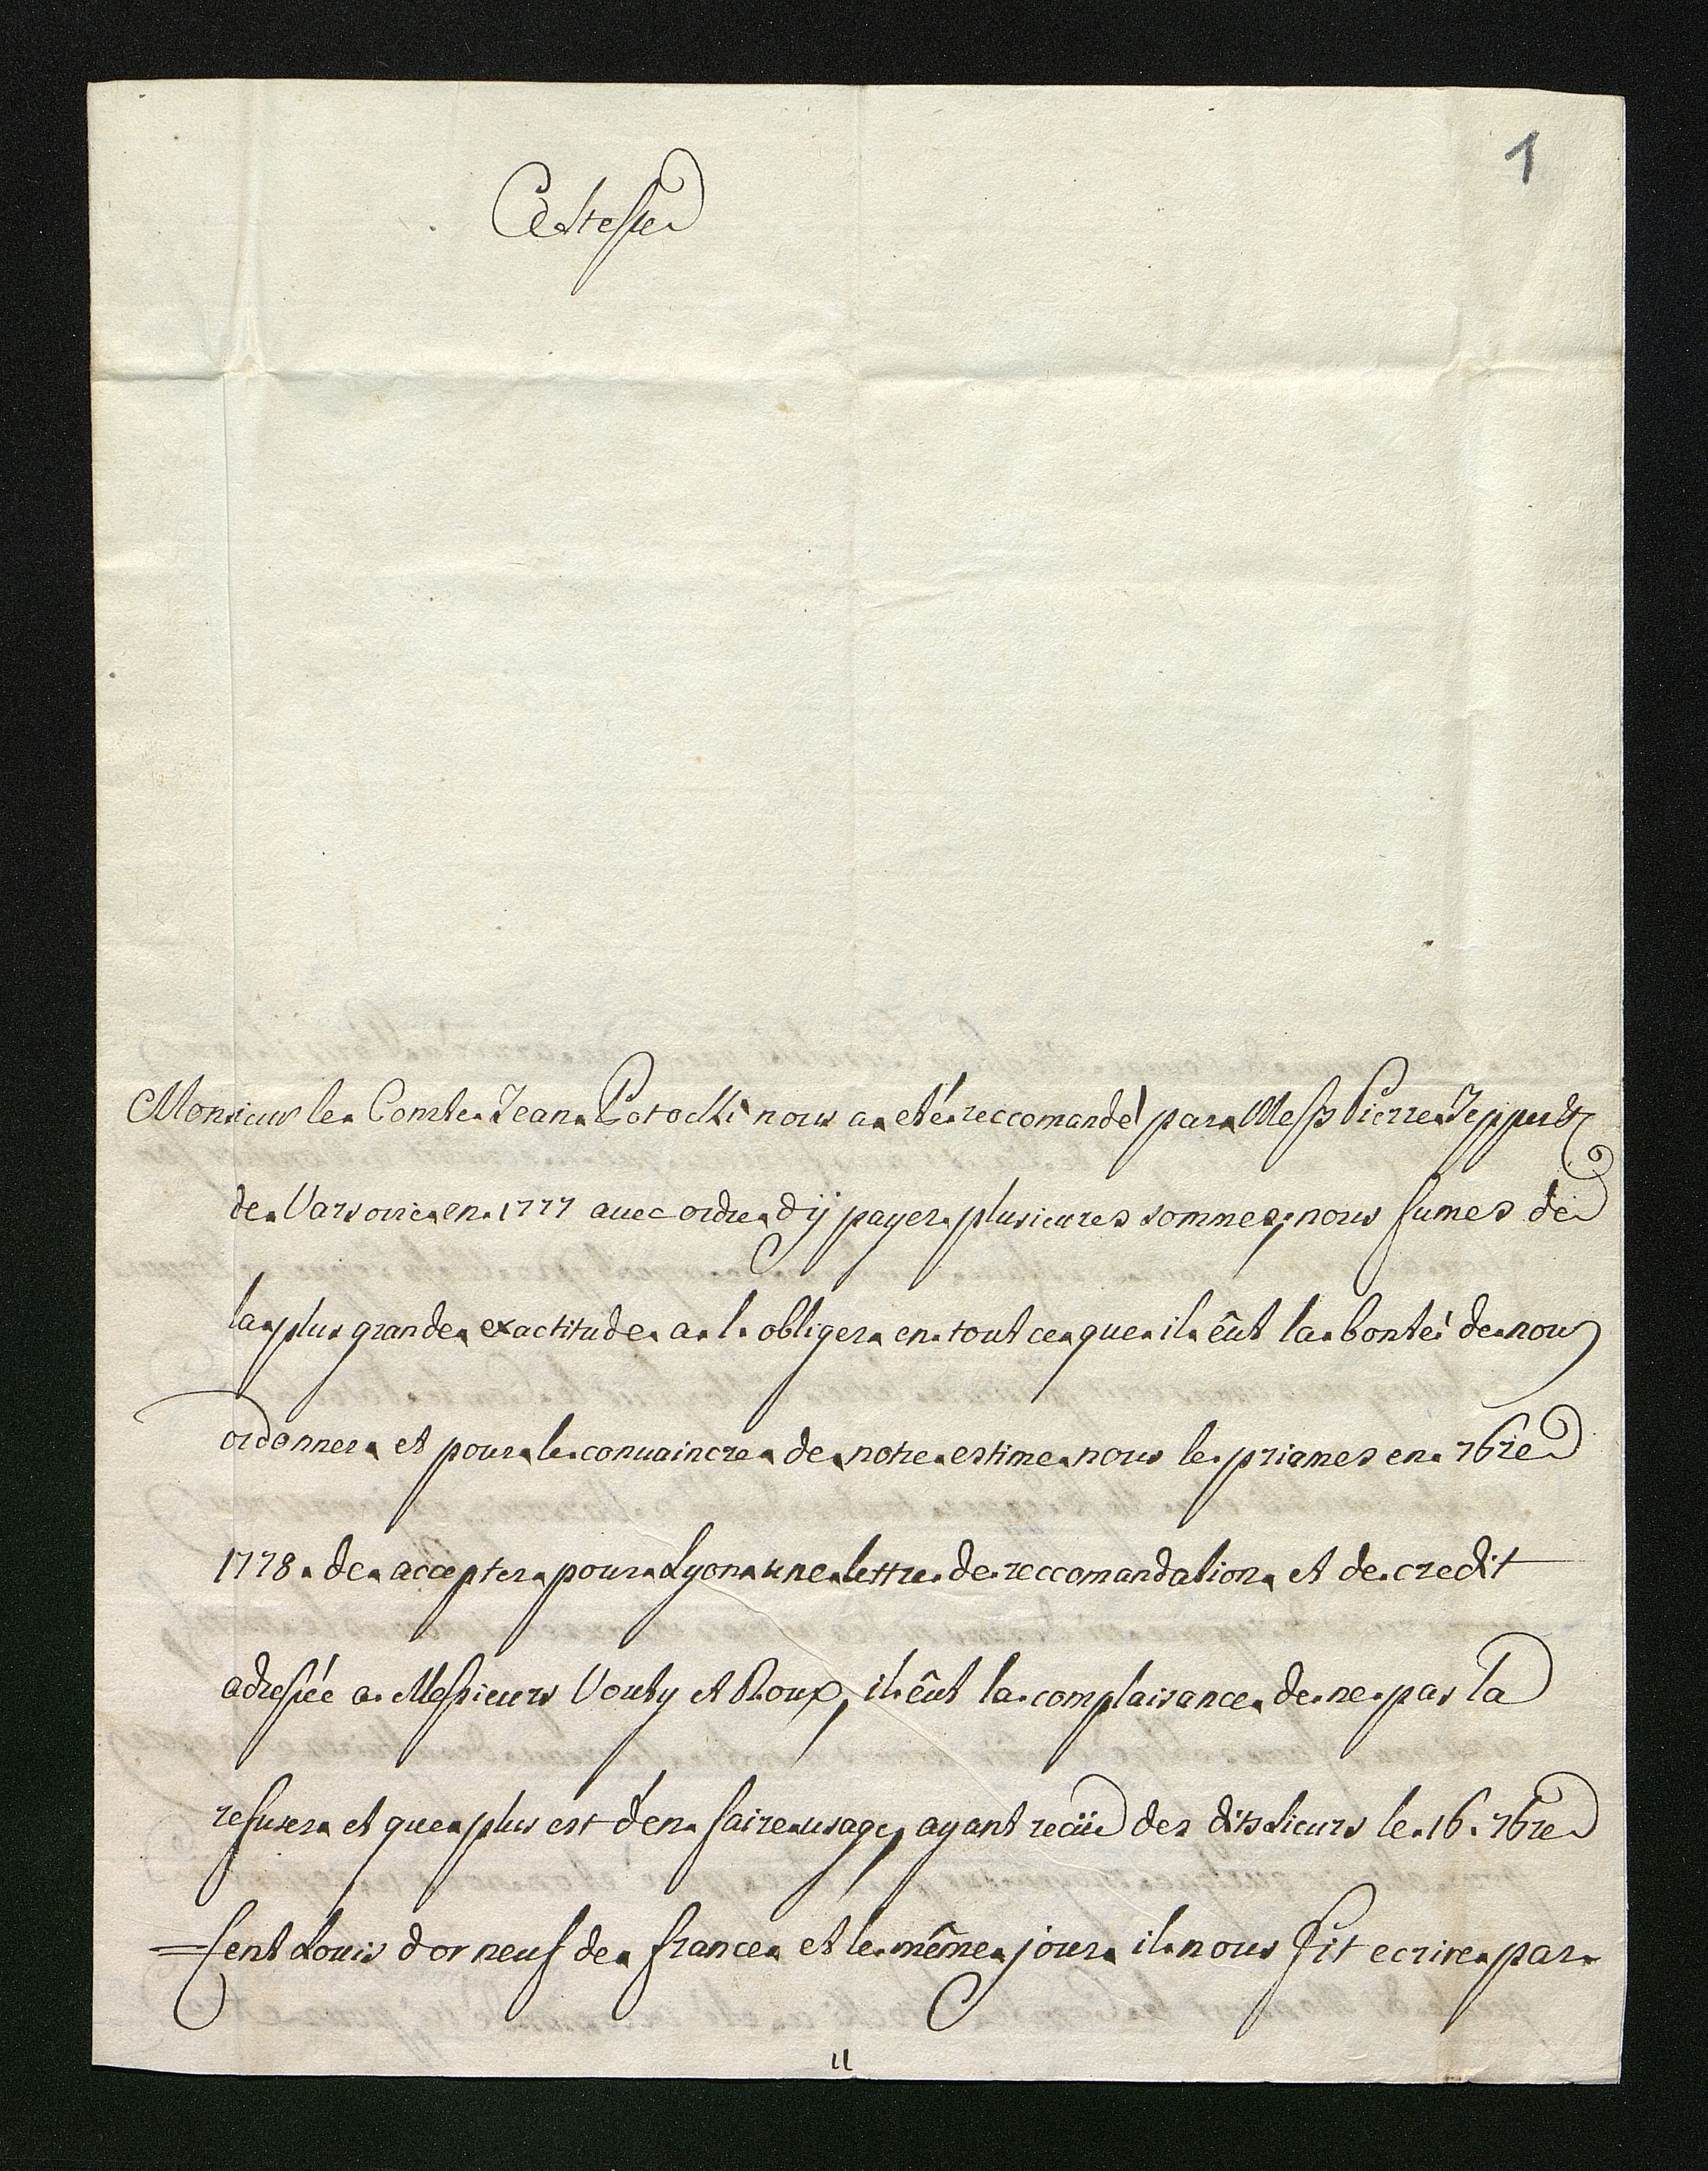 1
Altesse
Monsieur le Comte Jean Potocki nous a eté reccomandé par Mess.rs Pierre Tepper &
de Varsovie en 1777 avec ordre d'ÿ payer plusieures sommes; nous fumes de
la plus grande exactitude a l'obliger en tout ce que il eût la bonté de nous
ordonner et pour le convaincre de notre estime nous le priames en 7bre
1778 de accepter pour Lyon une lettre de reccomandation et de credit
adressée a Messieurs Vouty et Roux, il eût la complaisance de ne pas la
refuser et que plus est d'en faire usage, ayant reçüe des dits Sieurs le 16 7bre
Cent Louis d'or neuf de france et le même jour il nous fit ecrire par